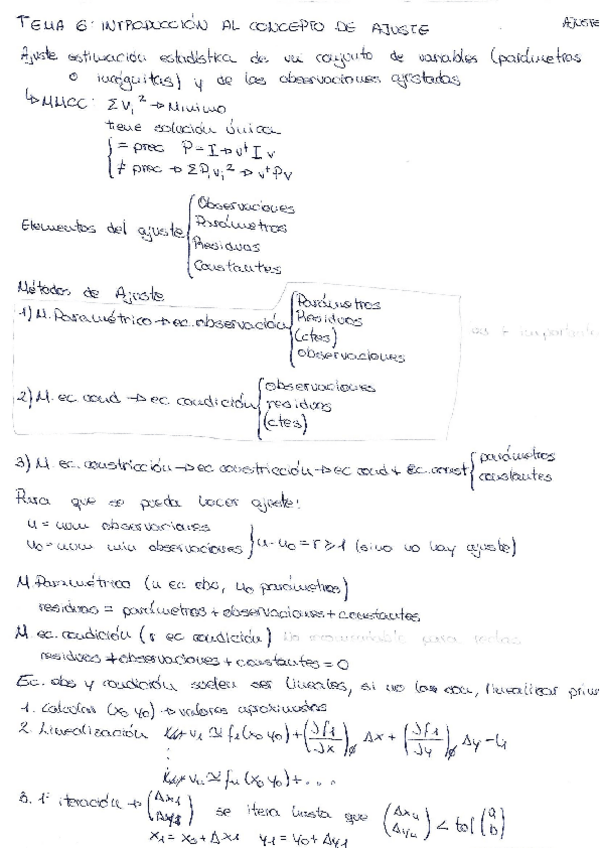 TEMA 6: INTRODUCCIÓN AL CONCEPTO DE AJUSTE
AJUSTE
Ajuste estimación estadística de un conjunto de variables (parámetros
o incógnitas) y de las observaciones ajustadas
↳ MMCC: Σvᵢ² → Mínimo
tiene solución única
= prec P = I → vᵗ I v
≠ prec → ΣPᵢvᵢ² → vᵗPv
Elementos del ajuste { Observaciones
Parámetros
Residuos
Constantes
Métodos de Ajuste
1) M. Paramétrico → ec. observación { Parámetros
Residuos
(ctes)
observaciones
2) M. ec cond → ec. condición { observaciones
residuos
(ctes)
3) M. ec. constricción → ec constricción → ec cond + ec. const { parámetros
constantes
Para que se pueda hacer ajuste:
n = núm observaciones
n₀ = núm mín observaciones } n - n₀ = r ≥ 1 (sino no hay ajuste)
M. Paramétrico (n ec obs, n₀ parámetros)
residuos = parámetros + observaciones + constantes
M ec. condición (r ec condición) no recomendable para redes
residuos + observaciones + constantes = 0
Ec. obs y condición suelen ser lineales, si no lo son, linealizar prim
1. Calcular (x₀ y₀) → valores aproximados
2. Linealización v₁ ≅ f₁(x₀ y₀) + (∂f₁/∂x)₀ Δx + (∂f₁/∂y)₀ Δy - L₁
⋮
vₙ ≅ fₙ(x₀ y₀) + . . .
3. 1ª iteración → (Δx₁ Δy₁) se itera hasta que (Δxₙ Δyₙ) < tol (a b)
x₁ = x₀ + Δx₁ y₁ = y₀ + Δy₁